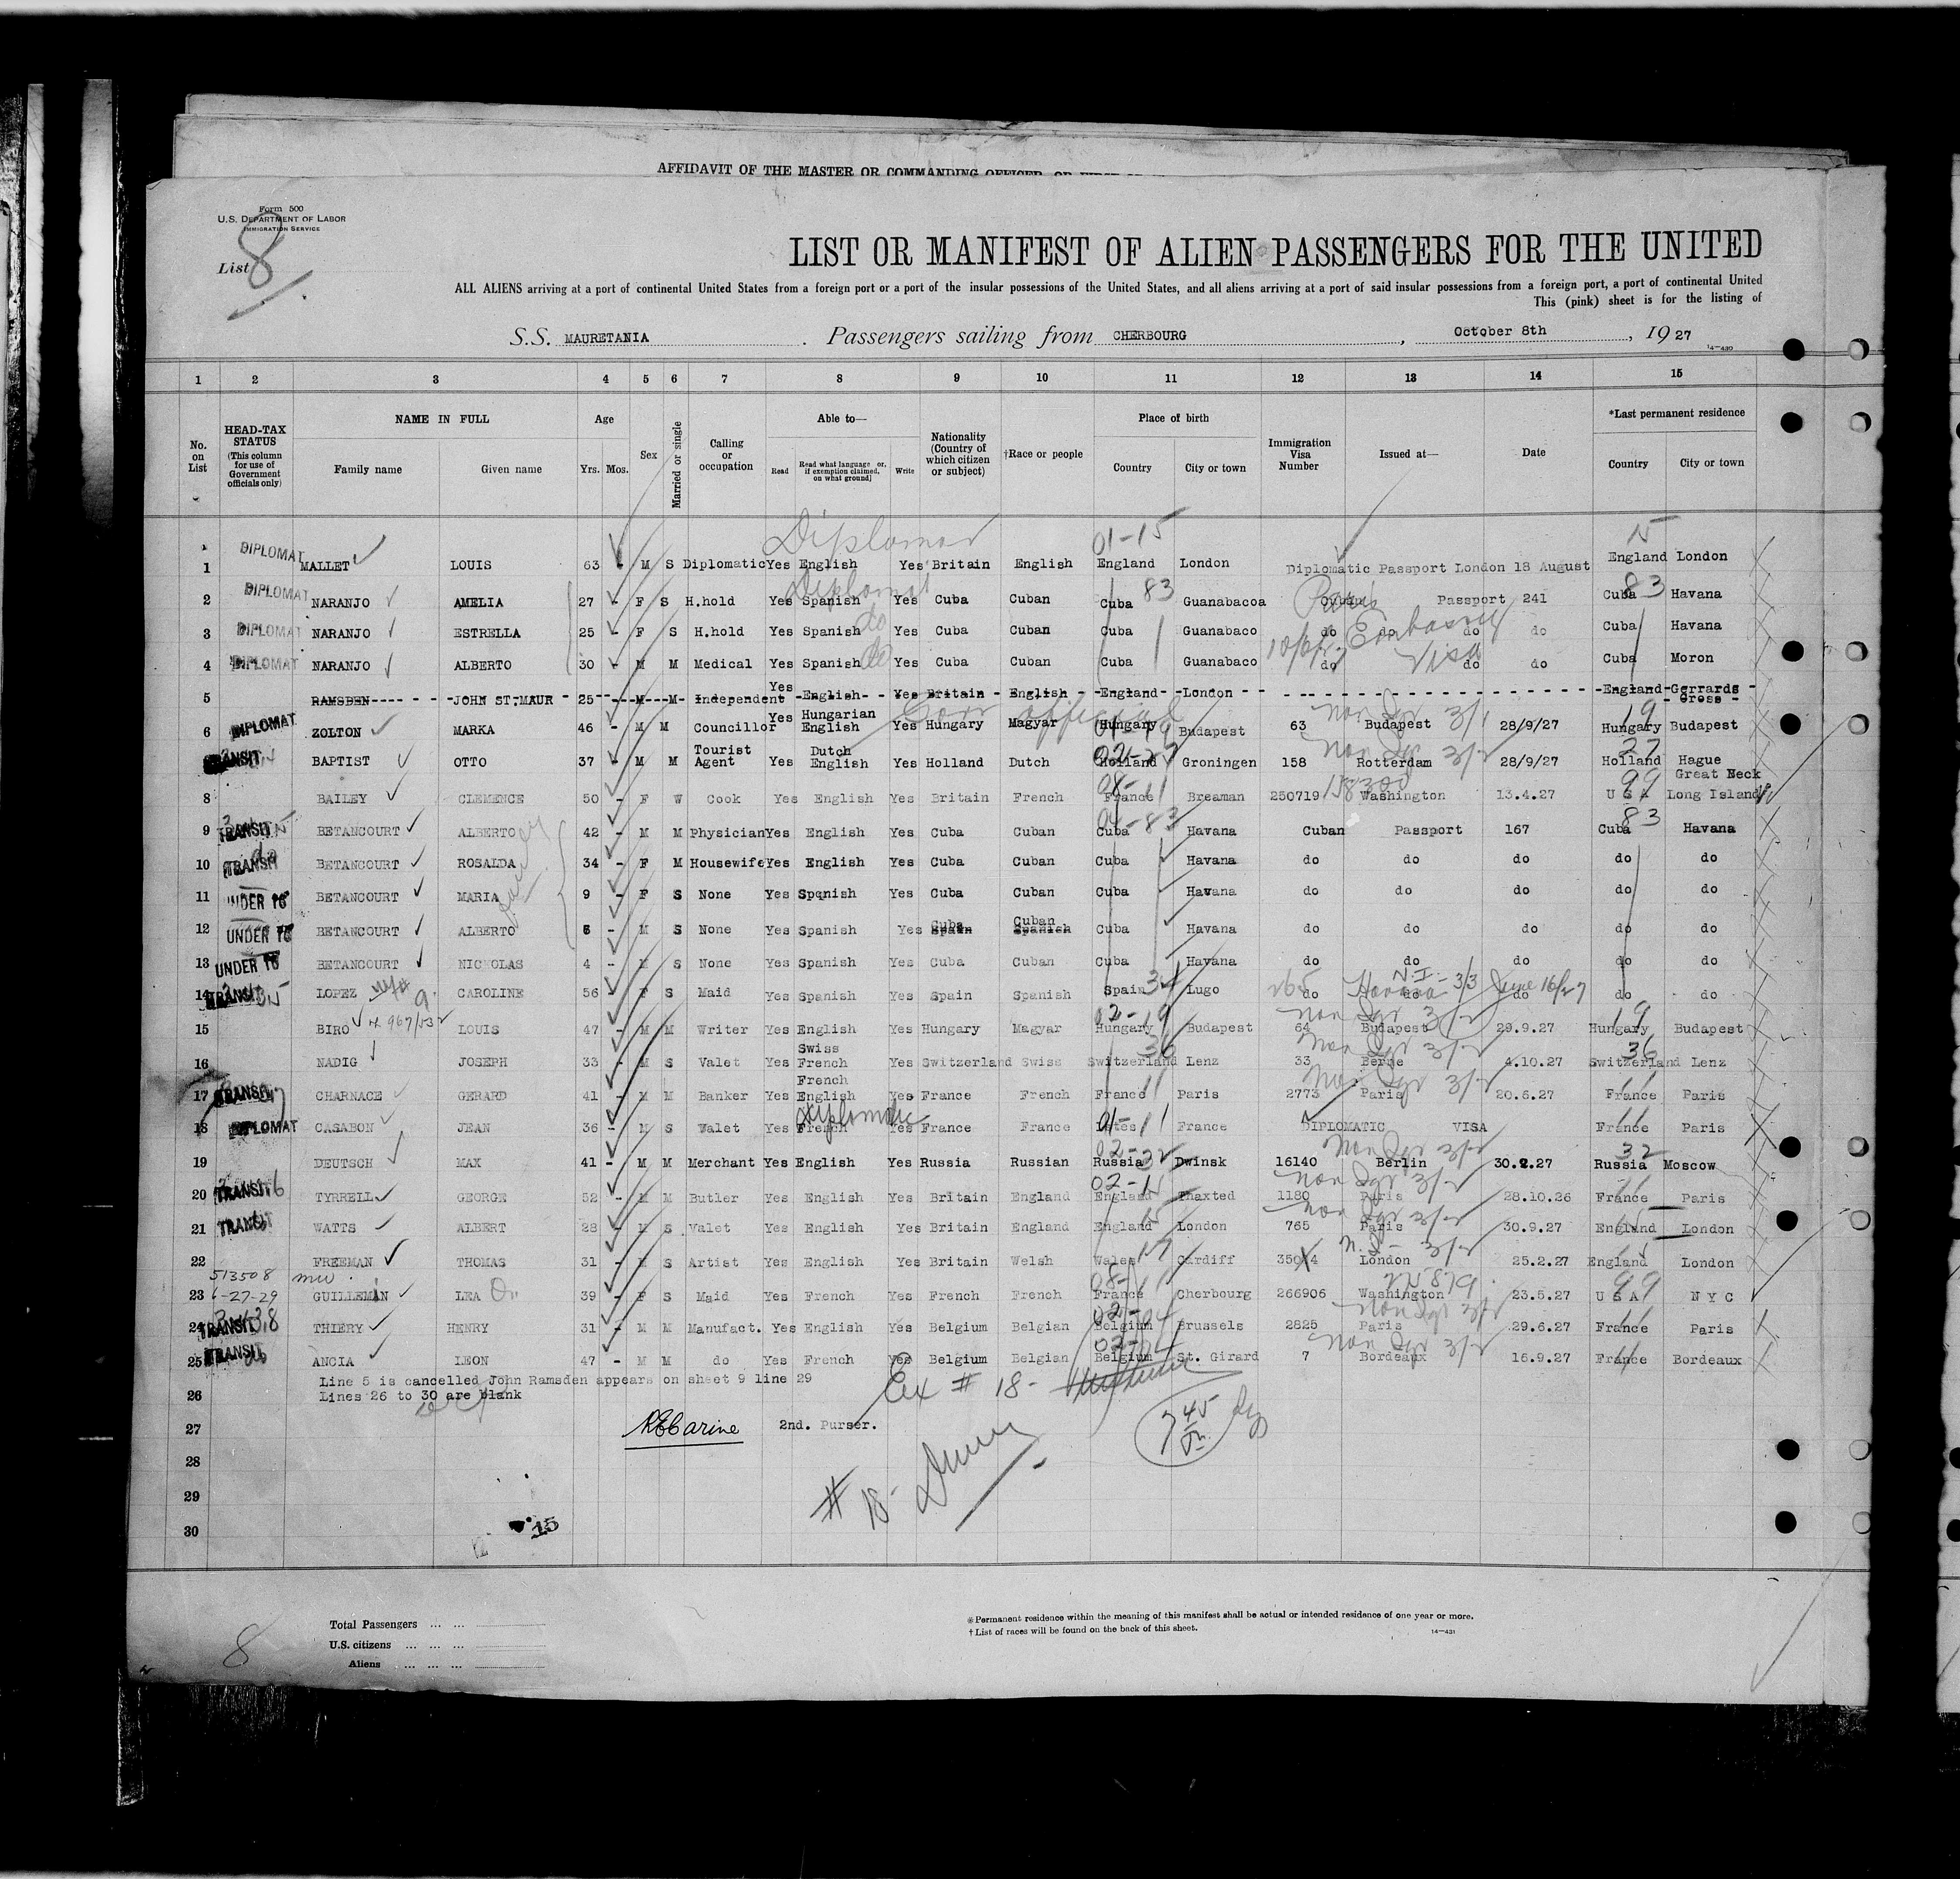 AFFIDAVIT OF THE MASTER OR COMMANDING OFFICER, OR FIRST
Form 500
U.S. DEPARTMENT OF LABOR
IMMIGRATION SERVICE
List 8
LIST OR MANIFEST OF ALIEN PASSENGERS FOR THE UNITED
ALL ALIENS arriving at a port of continental United States from a foreign port or a port of the insular possessions of the United States, and all aliens arriving at a port of said insular possessions from a foreign port, a port of continental United
This (pink) sheet is for the listing of
S.S. MAURETANIA. Passengers sailing from CHERBOURG, October 8th, 1927
14-430
1 2 3 4 5 6 7 8 9 10 11 12 13 14 15
No. on List HEAD-TAX STATUS (This column for use of Government officials only) NAME IN FULL Family name Given name Age Yrs. Mos. Sex Married or single Calling or occupation Able to— Read Read what language or, if exemption claimed, on what ground] Write Nationality (Country of which citizen or subject) †Race or people Place of birth Country City or town Immigration Visa Number Issued at— Date *Last permanent residence Country City or town
Diplomat 01-15 15
1 DIPLOMAT MALLET LOUIS 63 - M S Diplomatic Yes English Yes Britain English England London Diplomatic Passport London 18 August England London
Diplomat 83 Paris 83
2 DIPLOMAT NARANJO AMELIA 27 - F S H.hold Yes Spanish Yes Cuba Cuban Cuba Guanabacoa Cuban Passport 241 Cuba Havana
3 DIPLOMAT NARANJO ESTRELLA 25 - F S H.hold Yes Spanish do Yes Cuba Cuban Cuba Guanabaco do do do do Embassy Cuba Havana
4 DIPLOMAT NARANJO ALBERTO 30 - M M Medical Yes Spanish do Yes Cuba Cuban Cuba Guanabaco do Visa do do Cuba Moron
5 RAMSDEN JOHN ST.MAUR 25 - M M Independent Yes English Yes Britain English England London England Gerrards Cross
6 DIPLOMAT ZOLTON MARKA 46 - M M Councillor Yes Hungarian English Yes Hungary Magyar Hungary Budapest 63 Budapest 28/9/27 Hungary Budapest
Gov official 19
TRANSIT BAPTIST OTTO 37 - M M Tourist Agent Yes Dutch English Yes Holland Dutch Holland Groningen 158 Rotterdam 28/9/27 Holland Hague
8 BAILEY CLEMENCE 50 - F W Cook Yes English Yes Britain French France Breaman 250719 Washington 13.4.27 U S A Great Neck Long Island
9 TRANSIT BETANCOURT ALBERTO 42 - M M Physician Yes English Yes Cuba Cuban Cuba Havana Cuban Passport 167 Cuba Havana
10 TRANSIT BETANCOURT ROSALDA 34 - F M Housewife Yes English Yes Cuba Cuban Cuba Havana do do do do do
11 UNDER 16 BETANCOURT MARIA 9 - F S None Yes Spqnish Yes Cuba Cuban Cuba Havana do do do do do
12 UNDER 16 BETANCOURT ALBERTO 6 - M S None Yes Spanish Yes Cuba Spain Cuban Spanish Cuba Havana do do do do do
13 UNDER 16 BETANCOURT NICHOLAS 4 - M S None Yes Spanish Yes Cuba Cuban Cuba Havana do do do do do
14 TRANSIT LOPEZ CAROLINE 56 F S Maid Yes Spanish Yes Spain Spanish Spain Lugo 265 do Havana do June 16/27 do do do
15 BIRO LOUIS 47 - M M Writer Yes English Yes Hungary Magyar Hungary Budapest 64 Budapest 29.9.27 Hungary Budapest
16 NADIG JOSEPH 33 - M S Valet Yes Swiss French Yes Switzerland Swiss Switzerland Lenz 33 Berne 4.10.27 Switzerland Lenz
17 TRANSIT CHARNACE GERARD 41 - M M Banker Yes French English Yes France French France Paris 2773 Paris 20.6.27 France Paris
18 DIPLOMAT CASABON JEAN 36 - M S Valet Yes French Diplomatic Yes France France France DIPLOMATIC VISA France Paris
19 DEUTSCH MAX 41 - M M Merchant Yes English Yes Russia Russian Russia Dwinsk 16140 Berlin 30.2.27 Russia Moscow
20 TRANSIT TYRRELL GEORGE 52 - M M Butler Yes English Yes Britain England England Thaxted 1180 Paris 28.10.26 France Paris
21 TRANSIT WATTS ALBERT 28 - M S Valet Yes English Yes Britain England England London 765 Paris 30.9.27 England London
22 FREEMAN THOMAS 31 - M S Artist Yes English Yes Britain Welsh Wales Cardiff 35044 London 25.2.27 England London
513508
23 6-27-29 GUILLEMIN LEA 39 - F S Maid Yes French Yes French French France Cherbourg 266906 Washington 23.5.27 U S A N Y C
24 TRANSIT THIERY HENRY 31 - M M Manufact. Yes English Yes Belgium Belgian Belgium Brussels 2825 Paris 29.6.27 France Paris
25 TRANSIT ANCIA LEON 47 - M M do Yes French Yes Belgium Belgian Belgium St. Girard 7 Bordeaux 16.9.27 France Bordeaux
Line 5 is cancelled John Ramsden appears on sheet 9 line 29
26 Lines 26 to 30 are blank
Ex # 18-
27 2nd. Purser.
745
28
# 18-
29
30
15
Total Passengers
U.S. citizens
Aliens
8
*Permanent residence within the meaning of this manifest shall be actual or intended residence of one year or more.
†List of races will be found on the back of this sheet.
14-431